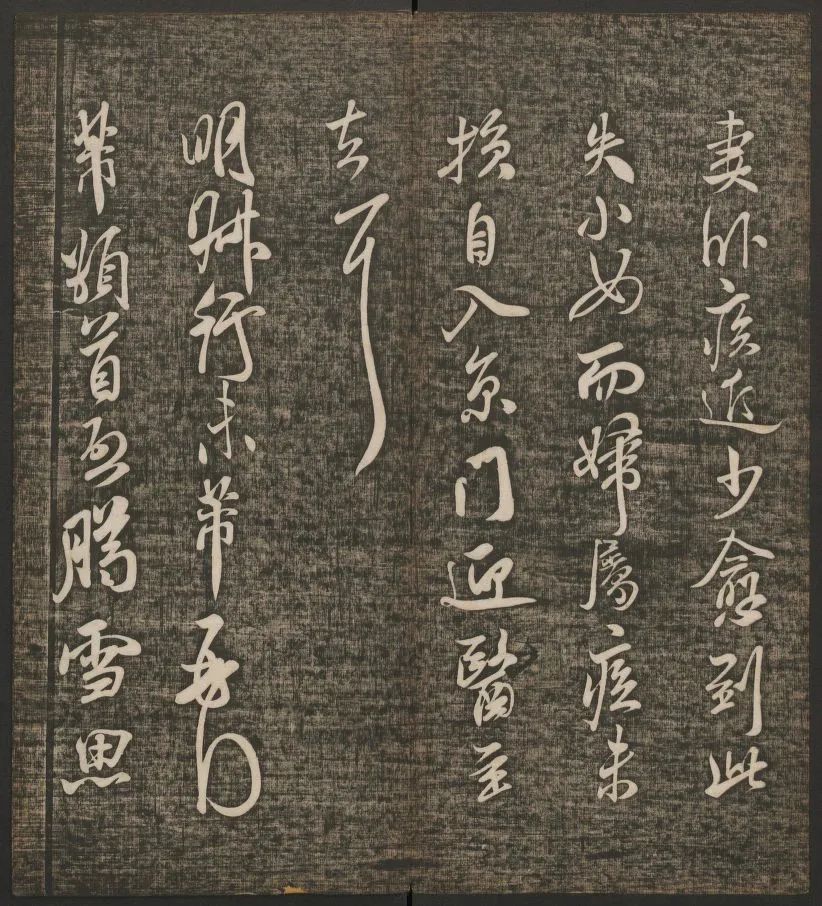 妻卧疾近少愈到此
失小女而婦屬疾未
損自入京门迎醫至
耳
明行未芾再
芾頓首雪思